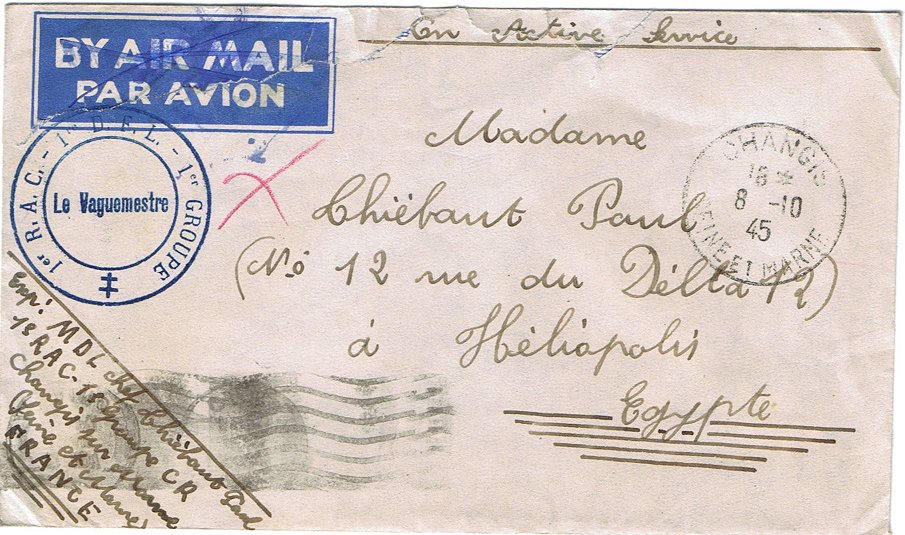 On Active Service
BY AIR MAIL
PAR AVION
1er R.A.C. - 1e D.F.L. - 1er GROUPE
Le Vaguemestre
Madame
Thiébaut Paul
(No 12 rue du Délta 12)
à Héliopolis
Egypte
CHANGIS
16 *
8 -10
45
SEINE ET MARNE
Exp: MDL chef Thiébaut Paul
1e RAC - 1e groupe CR
Changis sur Marne
(Seine et Marne)
FRANCE